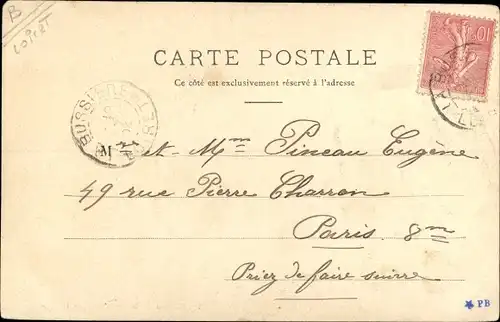 B
LOIRET
10
CARTE POSTALE
Ce côté est exclusivement réservé à l'adresse
BUSSIÈRE
M et Mme Pineau Eugène
49 rue Pierre Charron
Paris 8me
Priez de faire suivre
PB